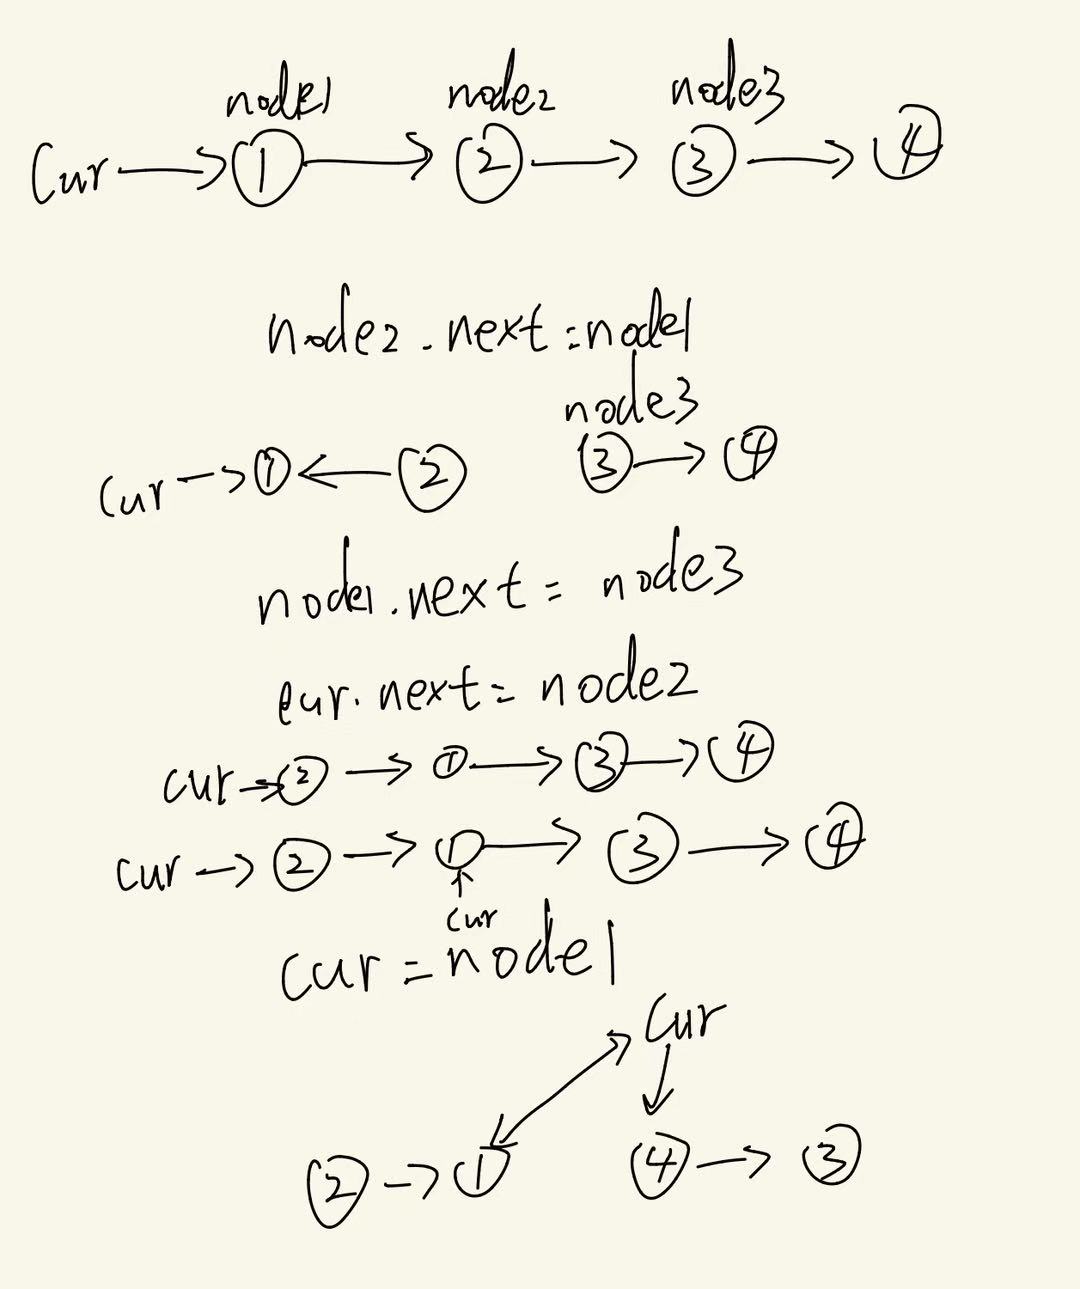 node1 node2 node3
Cur → ① → ② → ③ → ④
node2.next=node1
node3
Cur → ① ← ② ③ → ④
node1.next = node3
cur.next = node2
cur → ② → ① → ③ → ④
cur → ② → ① → ③ → ④
cur
cur = node1
Cur
② → ① ④ → ③